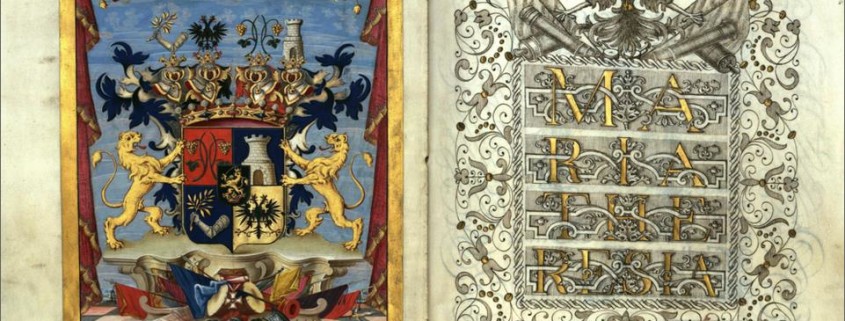 MA
RIA
THE
RESIA